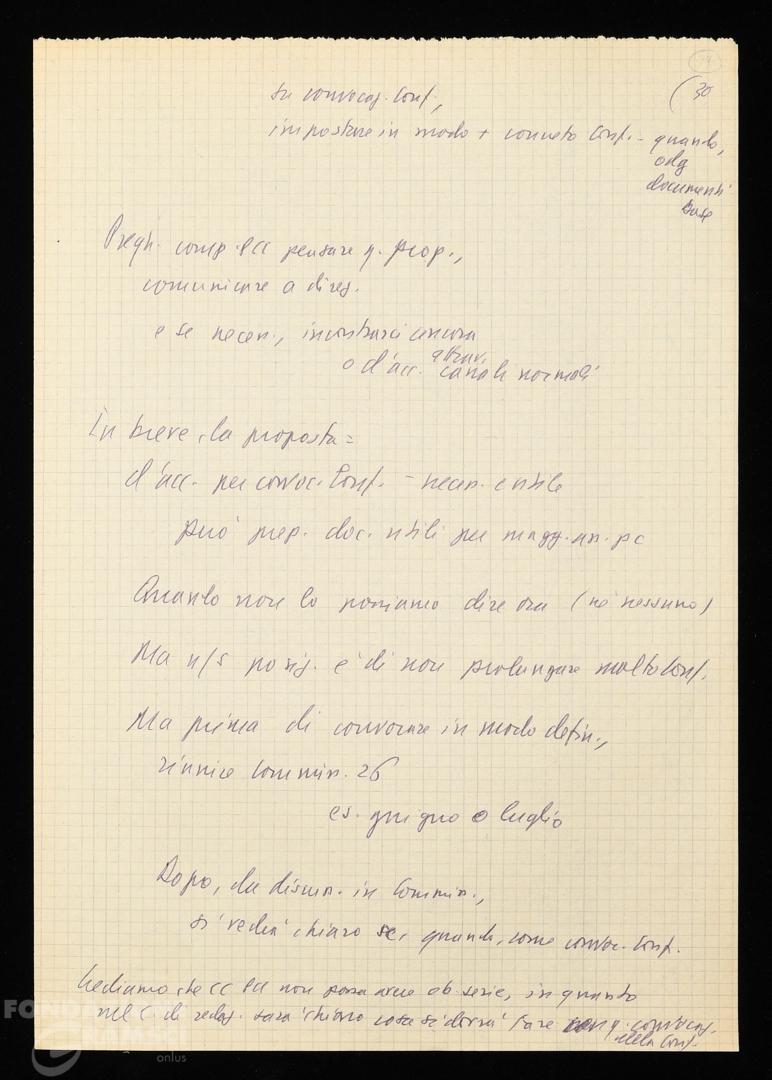 (30
su convocaz. Conf.,
impostare in modo + concreto Conf. - quando,
odg
documenti
base
Pregh. comp. PCI pensare q. prop.,
comunicare a direz.
e se necess., incontrarci ancora
o d'acc. attrav. canali normali
In breve, la proposta =
d'acc. per convoc. Conf. - necess. e utile
può prep. doc. utili per magg. un. pc
Quando non lo possiamo dire ora (né nessuno)
Ma n/s posiz. è di non prolungare molto Conf.
Ma prima di convocare in modo defin.,
riunire Commiss. 26
es. giugno o luglio
Dopo, da discuss. in Commiss.,
si vedrà chiaro se, quando, come convoc. Conf.
Crediamo che CC PCI non possa avere ob. serie, in quanto
nel C. di redaz. sarà chiaro cosa si dovrà fare q. convocaz.
della Conf.
FOND
onlus